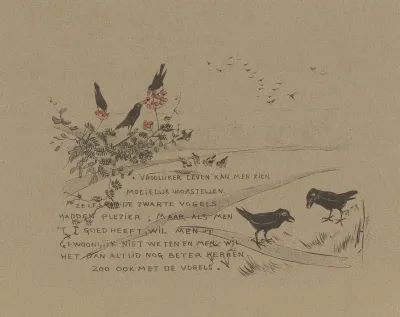 VROOLIJKER LEVEN KAN MEN ZICH
MOEIELIJK VOORSTELLEN.
ZELFS DE ZWARTE VOGELS
HADDEN PLEZIER; MAAR ALS MEN
'T GOED HEEFT WIL MEN 'T
GEWOONLIJK NIET WETEN EN MEN WIL
HET DAN ALTIJD NOG BETER HEBBEN.
ZOO OOK MET DE VOGELS.